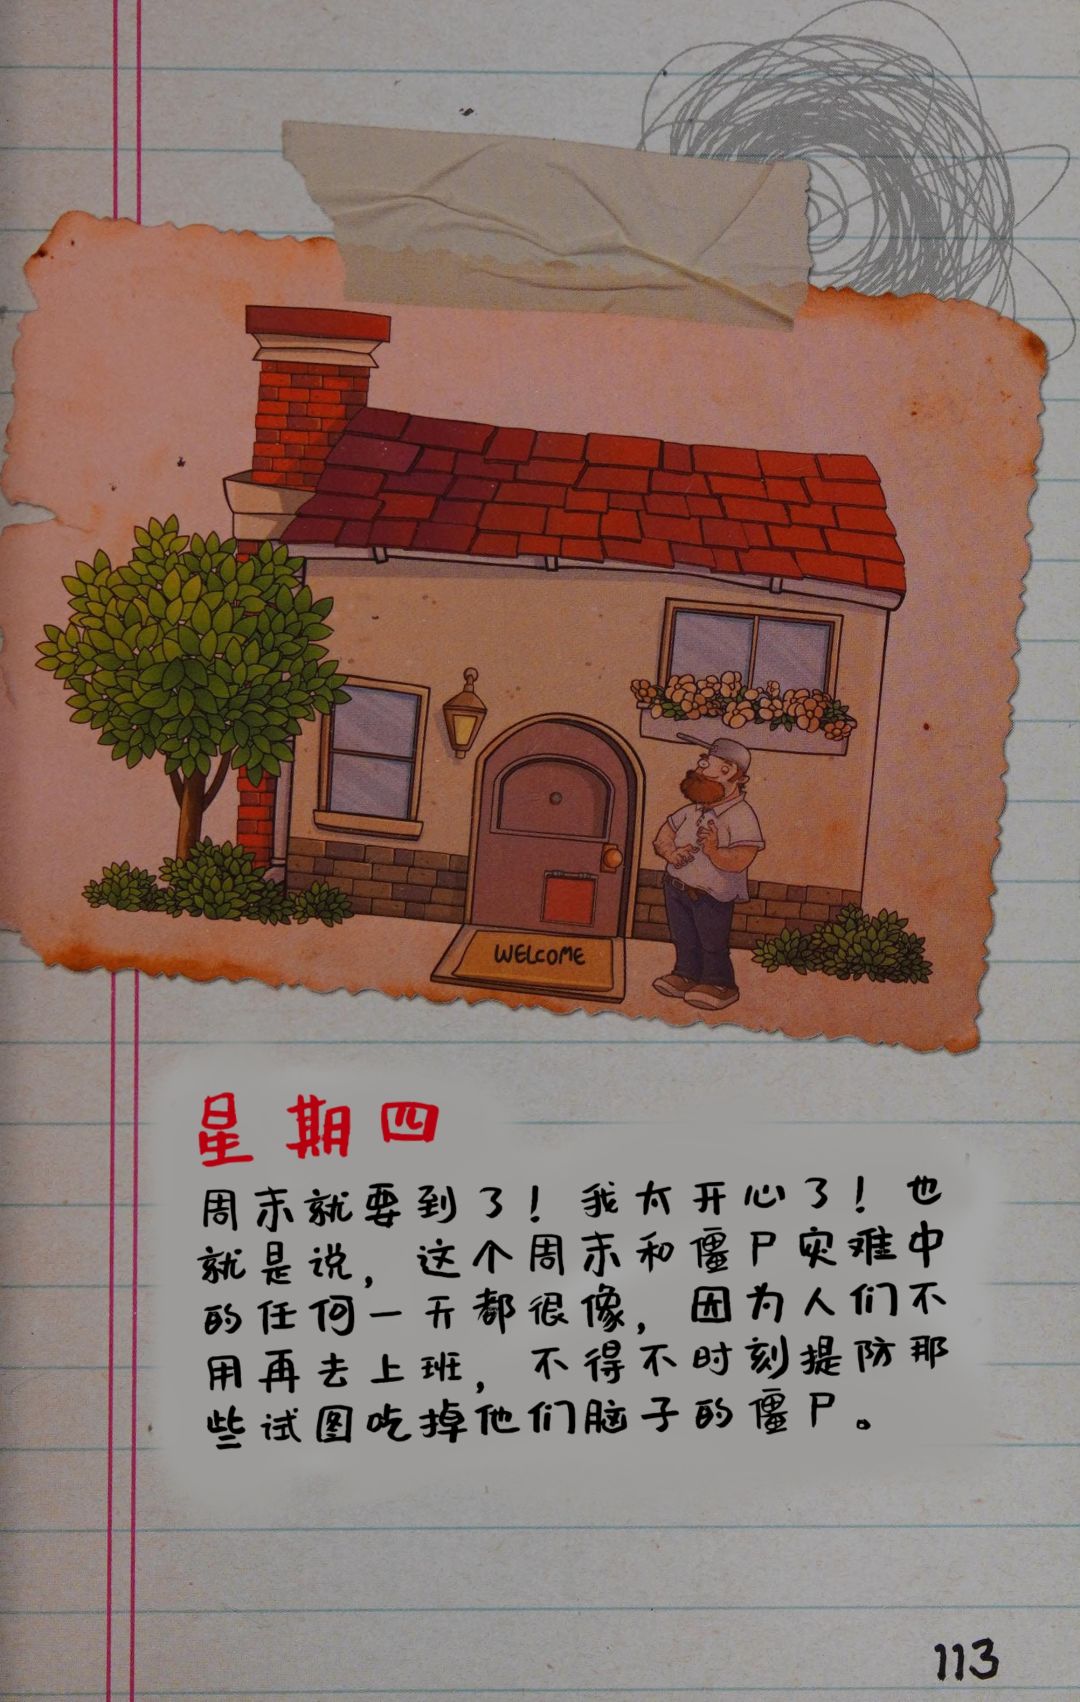 WELCOME
星期四
周末就要到了！我太开心了！也
就是说，这个周末和僵尸灾难中
的任何一天都很像，因为人们不
用再去上班，不得不时刻提防那
些试图吃掉他们脑子的僵尸。
113